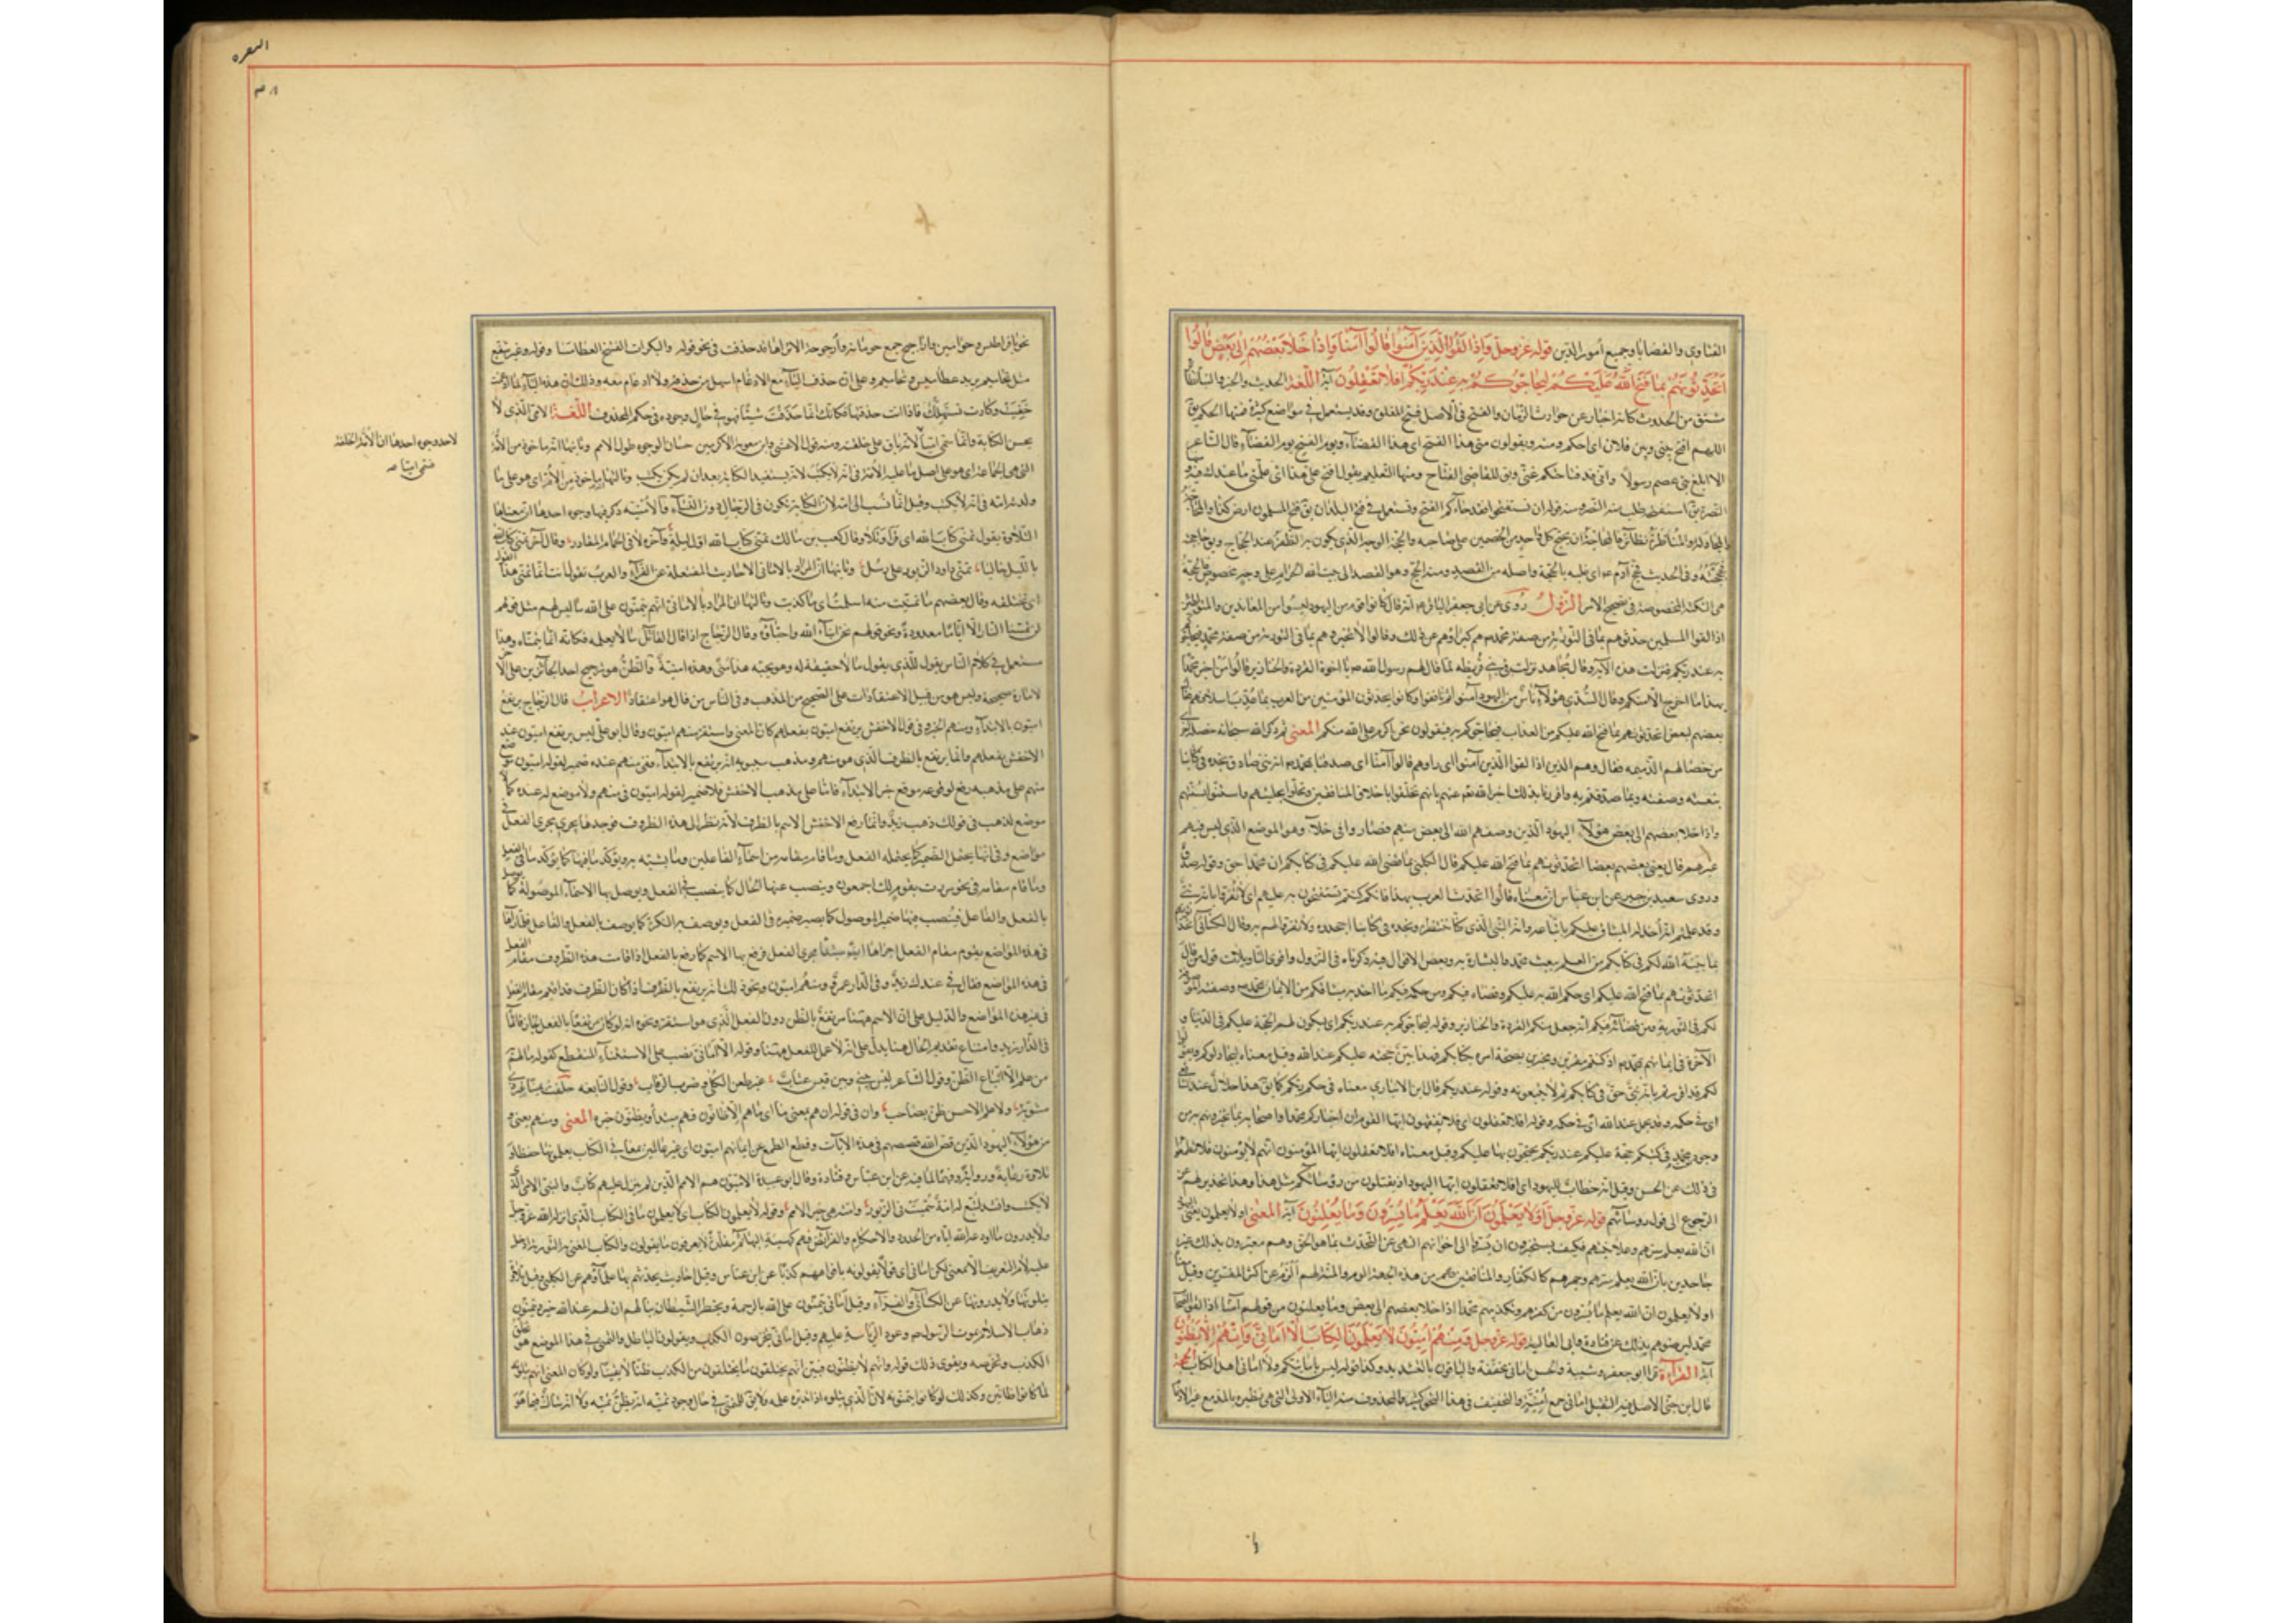 الفتاوى والقضايا وجميع أمور الدين قوله عز وجل وَإِذَا لَقُوا الَّذِينَ آمَنُوا قَالُوا آمَنَّا وَإِذَا خَلَا بَعْضُهُمْ إِلَى بَعْضٍ قَالُوا
أَتُحَدِّثُونَهُمْ بِمَا فَتَحَ اللَّهُ عَلَيْكُمْ لِيُحَاجُّوكُمْ بِهِ عِنْدَ رَبِّكُمْ أَفَلَا تَعْقِلُونَ آية اللغة الحديث والخبر والنبأ نظائر
مشتق من الحدوث كانه اخبار عن حوادث الزمان والفتح في الاصل فتح المغلق وقد يستعمل في مواضع كثيرة فمنها الحكم يق
اللهم افتح بيني وبين فلان اى احكم ومنه ويقولون متى هذا الفتح اى هذا القضاء ويوم الفتح يوم القضاء قال الشاعر
الا ابلغ بنى عصم رسولا وانى عن فتاحتكم غنى ويق للقاضى الفتاح ومنها التعليم يقول افتح على هذا اى علمنى ما عندك فيه
النصرة يق استفتحه طلب منه النصر ومنه قوله ان تستفتحوا فقد جاءكم الفتح وتستعمل في فتح البلدان يق فتح المسلمون ارض كذا والمحاجة
والمجادلة والمناظرة نظائر فالمحاجة ان يحتج كل واحد من الخصمين على صاحبه والحجة الوجه الذى يكون به الظفر عند الحجاج ويق حاججته
فحججته وفى الحديث فحج آدم موسى اى غلبه بالحجة واصله من القصد ومنه الحج وهو القصد الى بيت الله الحرام على وجه مخصوص فالحجة
هى النكتة المخصوصة في تصحيح الامر النزول روى عن ابى جعفر الباقر انه قال كان قوم من اليهود ليسوا من المعاندين والمتواطئين
اذا لقوا المسلمين حدثوهم بما في التورية من صفة محمد فنهاهم كبراؤهم عن ذلك وقالوا لا تخبروهم بما في التورية من صفة محمد فيحاجوكم
به عند ربكم فنزلت هذه الآية وقال مجاهد نزلت في بنى قريظة لما قال لهم رسول الله يا اخوة القردة والخنازير قالوا من اخبر محمدا
بهذا ما اخرج الا منكم وقال السدى هؤلاء ناس من اليهود آمنوا ثم نافقوا وكانوا يحدثون المؤمنين من العرب بما عذب به اسلافهم فقال
بعضهم لبعض اتحدثونهم بما فتح الله عليكم من العذاب فيحاجوكم به فيقولون نحن اكرم على الله منكم المعنى ثم ذكر الله سبحانه خصلة اخرى
من خصالهم الذميمة فقال وهم الذين اذا لقوا الذين آمنوا اى راوهم قالوا آمنا اى صدقنا بمحمد انه نبى صادق نجده في كتابنا
بنعته وصفته وبما صدقتم به واقررنا بذلك اخبر الله تعالى عنهم بانهم تخلقوا باخلاق المنافقين وتحلوا بحليتهم واستنوا بسنتهم
واذا خلا بعضهم الى بعض هؤلاء اليهود الذين وصفهم الله الى بعض منهم فصاروا في خلاء وهو الموضع الذى ليس فيه
غيرهم قال يعنى بعضهم بعضا اتحدثونهم بما فتح الله عليكم قال الكلبى بما قضى الله عليكم في كتابكم ان محمدا حق وقوله صدق
وروى سعيد بن جبير عن ابن عباس ان معناه قالوا لا تحدثوا العرب بهذا فانكم كنتم تستفتحون به عليهم اى لا تقروا بانه نبى
وقد علمتم انه اخذ له الميثاق عليكم باتباعه وانه النبى الذى كنا ننتظره ونجده في كتابنا اجحدوه ولا تقروا لهم به وقال الكسائى
بما بينه الله لكم في كتابكم من العلم ببعث محمد والبشارة به وبعض الاقوال فيه ذكرناه في النزول واقوى التاويلات قول من قال
اتحدثونهم بما فتح الله عليكم اى حكم الله به عليكم وقضاه فيكم ومن حكمه فيكم ما اخذ به ميثاقكم من الايمان بمحمد وصفته الموصوفة
لكم في التورية ومن قضائه فيكم انه جعل منكم القردة والخنازير وقوله ليحاجوكم به عند ربكم اى ليكون لهم الحجة عليكم في الدنيا و
الآخرة في ايمانهم بمحمد اذ كنتم مقرين به ومخبرين بصحة امره من كتابكم فهذا يبين حجته عليكم عند الله وقيل معناه ليجادلوكم ويقولوا
لكم قد اقررتم بانه نبى حق في كتابكم ثم لا تتبعونه وقوله عند ربكم قال ابن الانبارى معناه في حكم ربكم كما يق هذا حلال عند الشافعى
اى في حكمه وقد يحل عند الله اى في حكمه وقوله افلا تعقلون اى فلا تفقهون ايها القوم ان اخباركم محمدا واصحابه بما تخبرونهم به من
وجود نعت محمد في كتبكم حجة عليكم عند ربكم يحتجون بها عليكم وقيل معناه افلا تعقلون ايها المؤمنون انهم لا يؤمنون فلا تطمعوا
في ذلك عن الحسن وقيل انه خطاب لليهود اى افلا تعقلون ايها اليهود اذ يقبلون من رؤسائكم مثل هذا وهذا تحذير لهم عن
الرجوع الى قول رؤسائهم قوله عز وجل أَوَلَا يَعْلَمُونَ أَنَّ اللَّهَ يَعْلَمُ مَا يُسِرُّونَ وَمَا يُعْلِنُونَ آية المعنى اولا يعلمون يعنى اليهود
ان الله يعلم سرهم وعلانيتهم فكيف يستجيزون ان يسروا الى اخوانهم النهى عن التحدث بما هو الحق وهم مقرون بذلك غير
جاحدين بان الله يعلم سرهم وجهرهم كالكفار والمنافقين فهم من هذه الجهة الوم والمذمة لهم الزم عن اكثر المفسرين وقيل معناه
اولا يعلمون ان الله يعلم ما يسرون من كفرهم وتكذيبهم محمدا اذا خلا بعضهم الى بعض وما يعلنون من قولهم آمنا اذا لقوا اصحاب
محمد ليرضوهم بذلك عن قتادة وابى العالية قوله عز وجل وَمِنْهُمْ أُمِّيُّونَ لَا يَعْلَمُونَ الْكِتَابَ إِلَّا أَمَانِيَّ وَإِنْ هُمْ إِلَّا يَظُنُّونَ
آية القراءة قرا ابو جعفر وشيبة والحسن امانى مخففة والباقون بالتشديد وكذا قوله ليس بامانيكم ولا امانى اهل الكتاب الحجة
قال ابن جنى الاصل فيه التثقيل امانى جمع امنية والتخفيف في هذا النحو كثير والمحذوف منه الياء الاولى التى هى نظيره بالمد مع غير الادغام
البقرة
لاحد وجوه احدها ان الامة الخلقة
فسمى اميا صح
مثل تحاسيم يريد عطاميس وتحاسيم وعلى ان حذف الياء مع الادغام اسهل من حذفه ولا ادغام معه وذلك ان هذه الياء لما ادغمت
خفيت وكادت تستهلك فاذا انت حذفتها فكانك انما حذفت شيئا هو في حال وجوده في حكم المحذوف اللغة الامى الذى لا
يحسن الكتابة وانما سمى اميا لانه باق على خلقته ومنه قول الاعشى وان معوية الاكرمين حسان الوجوه طوال الامم وثانيها انه ماخوذ من الامة
التى هى الجماعة اى هو على اصل ما عليه الامة في انه لا يكتب لانه يستفيد الكتابة بعد ان لم يكن يكتب وثالثها انه ماخوذ من الام اى هو على ما
ولدته امه في انه لا يكتب وقيل انما نسب الى امه لان الكتابة تكون في الرجال دون النساء والامنية ذكر فيها وجوه احدها ان معناها
التلاوة يقول تمنى كتاب الله اى قرا وتلا وقال كعب بن مالك تمنى كتاب الله اول ليلة وآخره لاقى حمام المقادر وقال آخر تمنى كتاب الله
بالليل خاليا تمنى داود الزبور على رسل وثانيها ان المراد بالامانى الاحاديث المفتعلة عن الفراء والعرب تقول انت انما تمتنى هذا القول
اى تختلقه وقال بعضهم ما تمنيت منذ اسلمت اى ما كذبت وثالثها ان المراد بالامانى انهم يتمنون على الله ما ليس لهم مثل قولهم
لن تمسنا النار الا اياما معدودة ونحو قولهم نحن ابناء الله واحباؤه وقال الزجاج اذا قال القائل ما لا يعلمه فكانه انما يتمناه وهذا
مستعمل في كلام الناس يقول للذى يقول ما لا حقيقة له وهو يحبه هذا منى وهذه امنية والظن هو ترجيح احد الجائزين على الآخر
لامارة صحيحة وليس هو من قبيل الاعتقادات على الصحيح من المذهب وفى الناس من قال هو اعتقاد الاعراب قال الزجاج يرتفع
اميون بالابتداء ومنهم الخبر وفى قول الاخفش يرتفع اميون بفعلهم كان المعنى واستقر منهم اميون وقال ابو على ليس يرتفع اميون عند
الاخفش بفعلهم وانما يرتفع بالظرف الذى هو منهم ومذهب سيبويه انه يرتفع بالابتداء ففى منهم عنده ضمير لقوله اميون وموضع
منهم على مذهبه رفع لوقوعه موقع خبر الابتداء فاما على مذهب الاخفش فلا ضمير لقوله اميون في منهم ولا موضع له عنده كما لا
موضع لذهب في قولك ذهب زيد وانما رفع الاخفش الاسم بالظرف لانه نظر الى هذه الظروف فوجدها تجرى مجرى الفعل في
مواضع وفى انها تحتمل الضمير كما يحتمله الفعل وما قام مقامه من اسماء الفاعلين وما يشبه به ويؤكد ما فيها كما يؤكد ما في الفعل
وما قام مقامه في نحو مررت بقوم لك اجمعون وينصب عنها الحال كما ينصب بالفعل ويوصل بها الاسماء الموصولة كما يوصل
بالفعل والفاعل فيصير فيها ضمير الموصول كما يصير ضميره في الفعل ويوصف به النكرة كما يوصف بالفعل والفاعل فلما رآها
في هذه المواضع يقوم مقام الفعل اجراها ايضا مبتدأ مجرى الفعل فرفع بها الاسم كما رفع بالفعل اذ قامت هذه الظروف مقام الفعل
في هذه المواضع فقال في عندك زيد وفى الدار عمرو ومنهم اميون ونحو ذلك انه يرتفع بالظرف اذ كان الظرف قد اقيم مقام الفعل
في غير هذه المواضع والدليل على ان الاسم هيهنا مرتفع بالظرف دون الفعل الذى هو استقر ونحوه انه لو كان مرتفعا بالفعل لجاز قائما
في الدار زيد وامتناع تقديم الحال هنا يدل على انه لا عمل للفعل هيهنا وقوله الا امانى نصب على الاستثناء المنقطع كقوله ما لهم به
من علم الا اتباع الظن وقول الشاعر ليس بينى وبين قيس عتاب غير طعن الكلى وضرب الرقاب وقول النابغة حلفت يمينا غير ذى
مثنوية ولا علم الا حسن ظن بصاحب وان في قوله ان هم بمعنى ما اى ما هم الا ظانون فهم مبتدأ ويظنون خبره المعنى ومنهم يعنى
من هؤلاء اليهود الذين قص الله قصصهم في هذه الآيات وقطع الطمع عن ايمانهم اميون اى غير عالمين بمعانى الكتاب يعلمونها حفظا و
تلاوة لا رعاية ودراية وفهما لما فيه عن ابن عباس وقتادة وقال ابو عبيدة الاميون هم الامم الذين لم ينزل عليهم كتاب والنبى الامى الذى
لا يكتب وانشد لتبع له امة سميت في الزبور امته هى خير الامم وقوله لا يعلمون الكتاب اى لا يعلمون ما في الكتاب الذى انزله الله عز وجل
ولا يدرون ما اودعه الله اياه من الحدود والاحكام والفرائض فهم كهيئة البهائم مقلدة لا يعرفون ما يقولون والكتاب المعنى به التورية ادخل
عليه لام التعريف الا بمعنى لكن امانى اى قولا يقولونه بافواههم كذبا عن ابن عباس وقيل احاديث يحدثهم بها علماؤهم عن الكلبى وقيل تلاوة
يتلونها ولا يدرونها عن الكسائى والفراء وقيل امانى يتمنون على الله الرحمة ويخطر الشيطان ببالهم ان لهم عند الله خيرا ويتمنون
ذهاب الاسلام بموت الرسول وعود الرياسة عليهم وقيل امانى يتخرصون الكذب ويقولون الباطل والظن في هذا الموضع هو
الكذب وتخرصه ويقوى ذلك قوله وان هم الا يظنون فبين انهم يختلقون ما يختلقون من الكذب ظنا لا يقينا ولو كان المعنى انهم يتلونه
لما كانوا ظانين وكذلك لو كانوا يتمنونه لان الذى يتلوه اذا تدبره علمه ولا يق للمتمنى في حال وجود تمنيه انه يظن تمنيه ولا انه شاك فيما هو